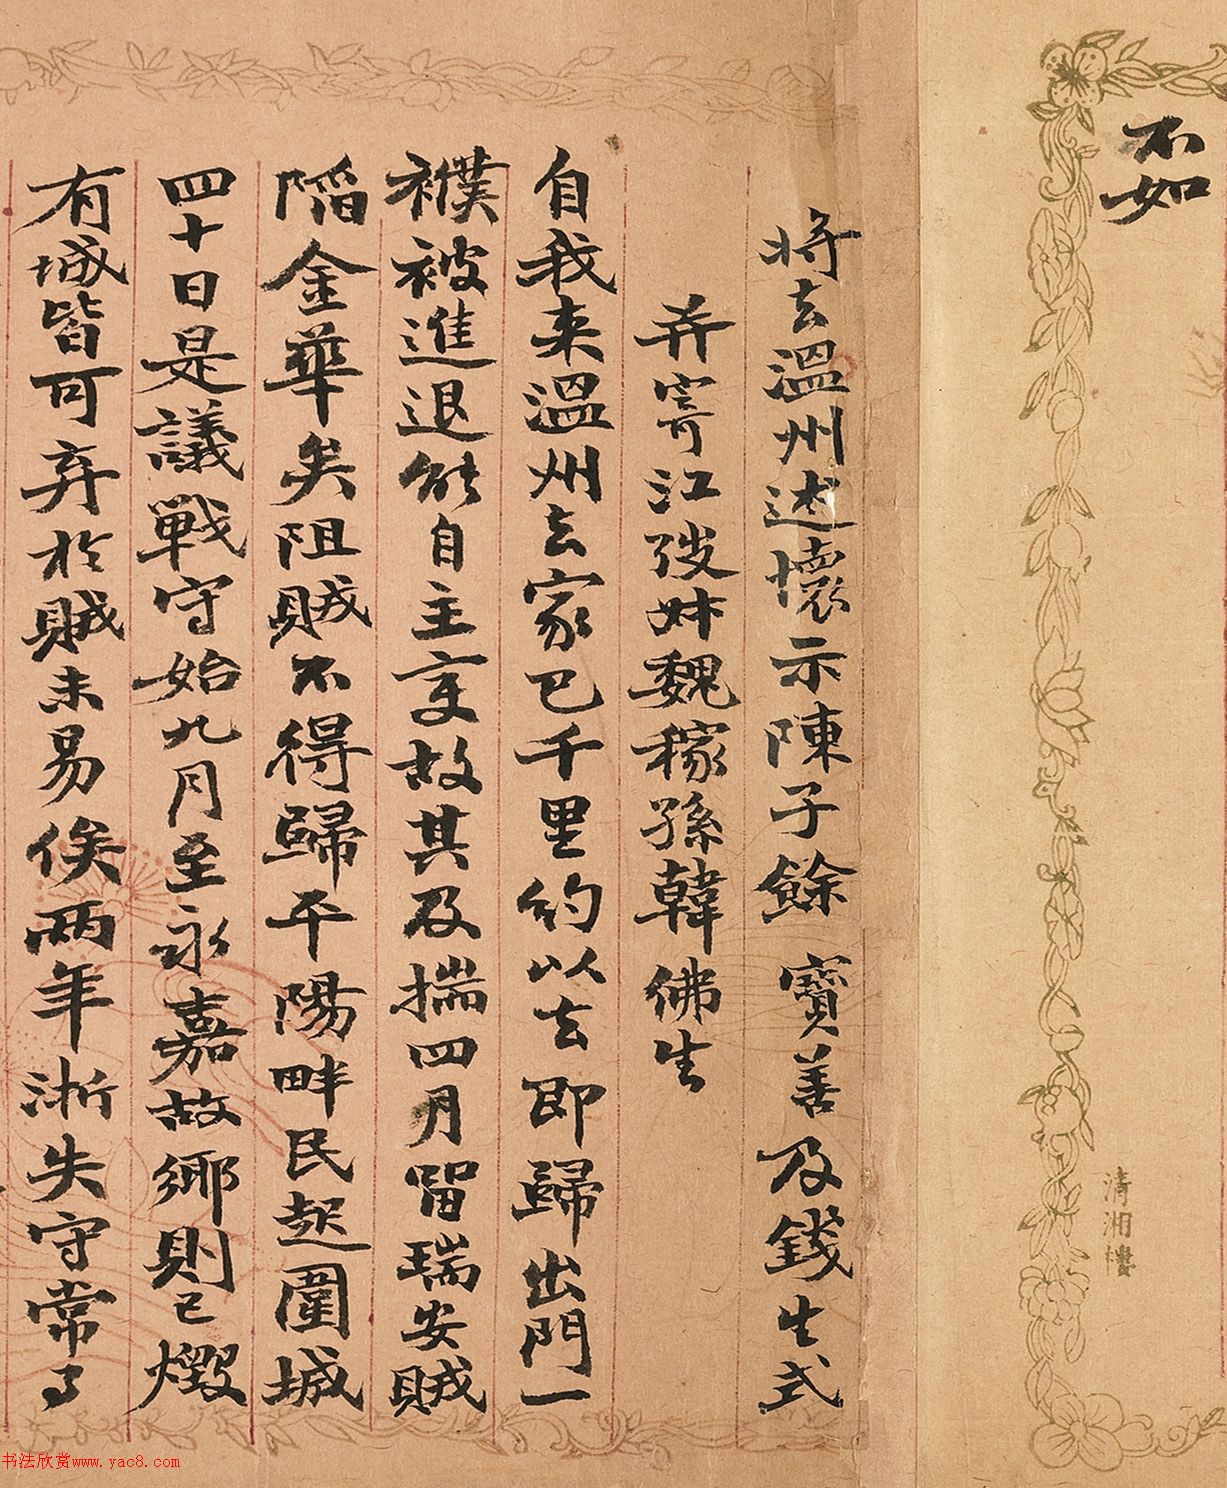 不如
清湘樓
將去溫州述懷示陳子餘寶善及錢生式
弄寄江弢妹魏稼孫韓佛生
自我來溫州去家已千里約以去即歸出門一
襆被進退能自主享故其及揣四月留瑞安賊
陷金華矣阻賊不得歸平陽畔民起圍城
四十日是議戰守始九月至永嘉故鄉則已燬
有城皆可弃於賊未易俟兩年浙失守常了
书法欣赏www.yac8.com